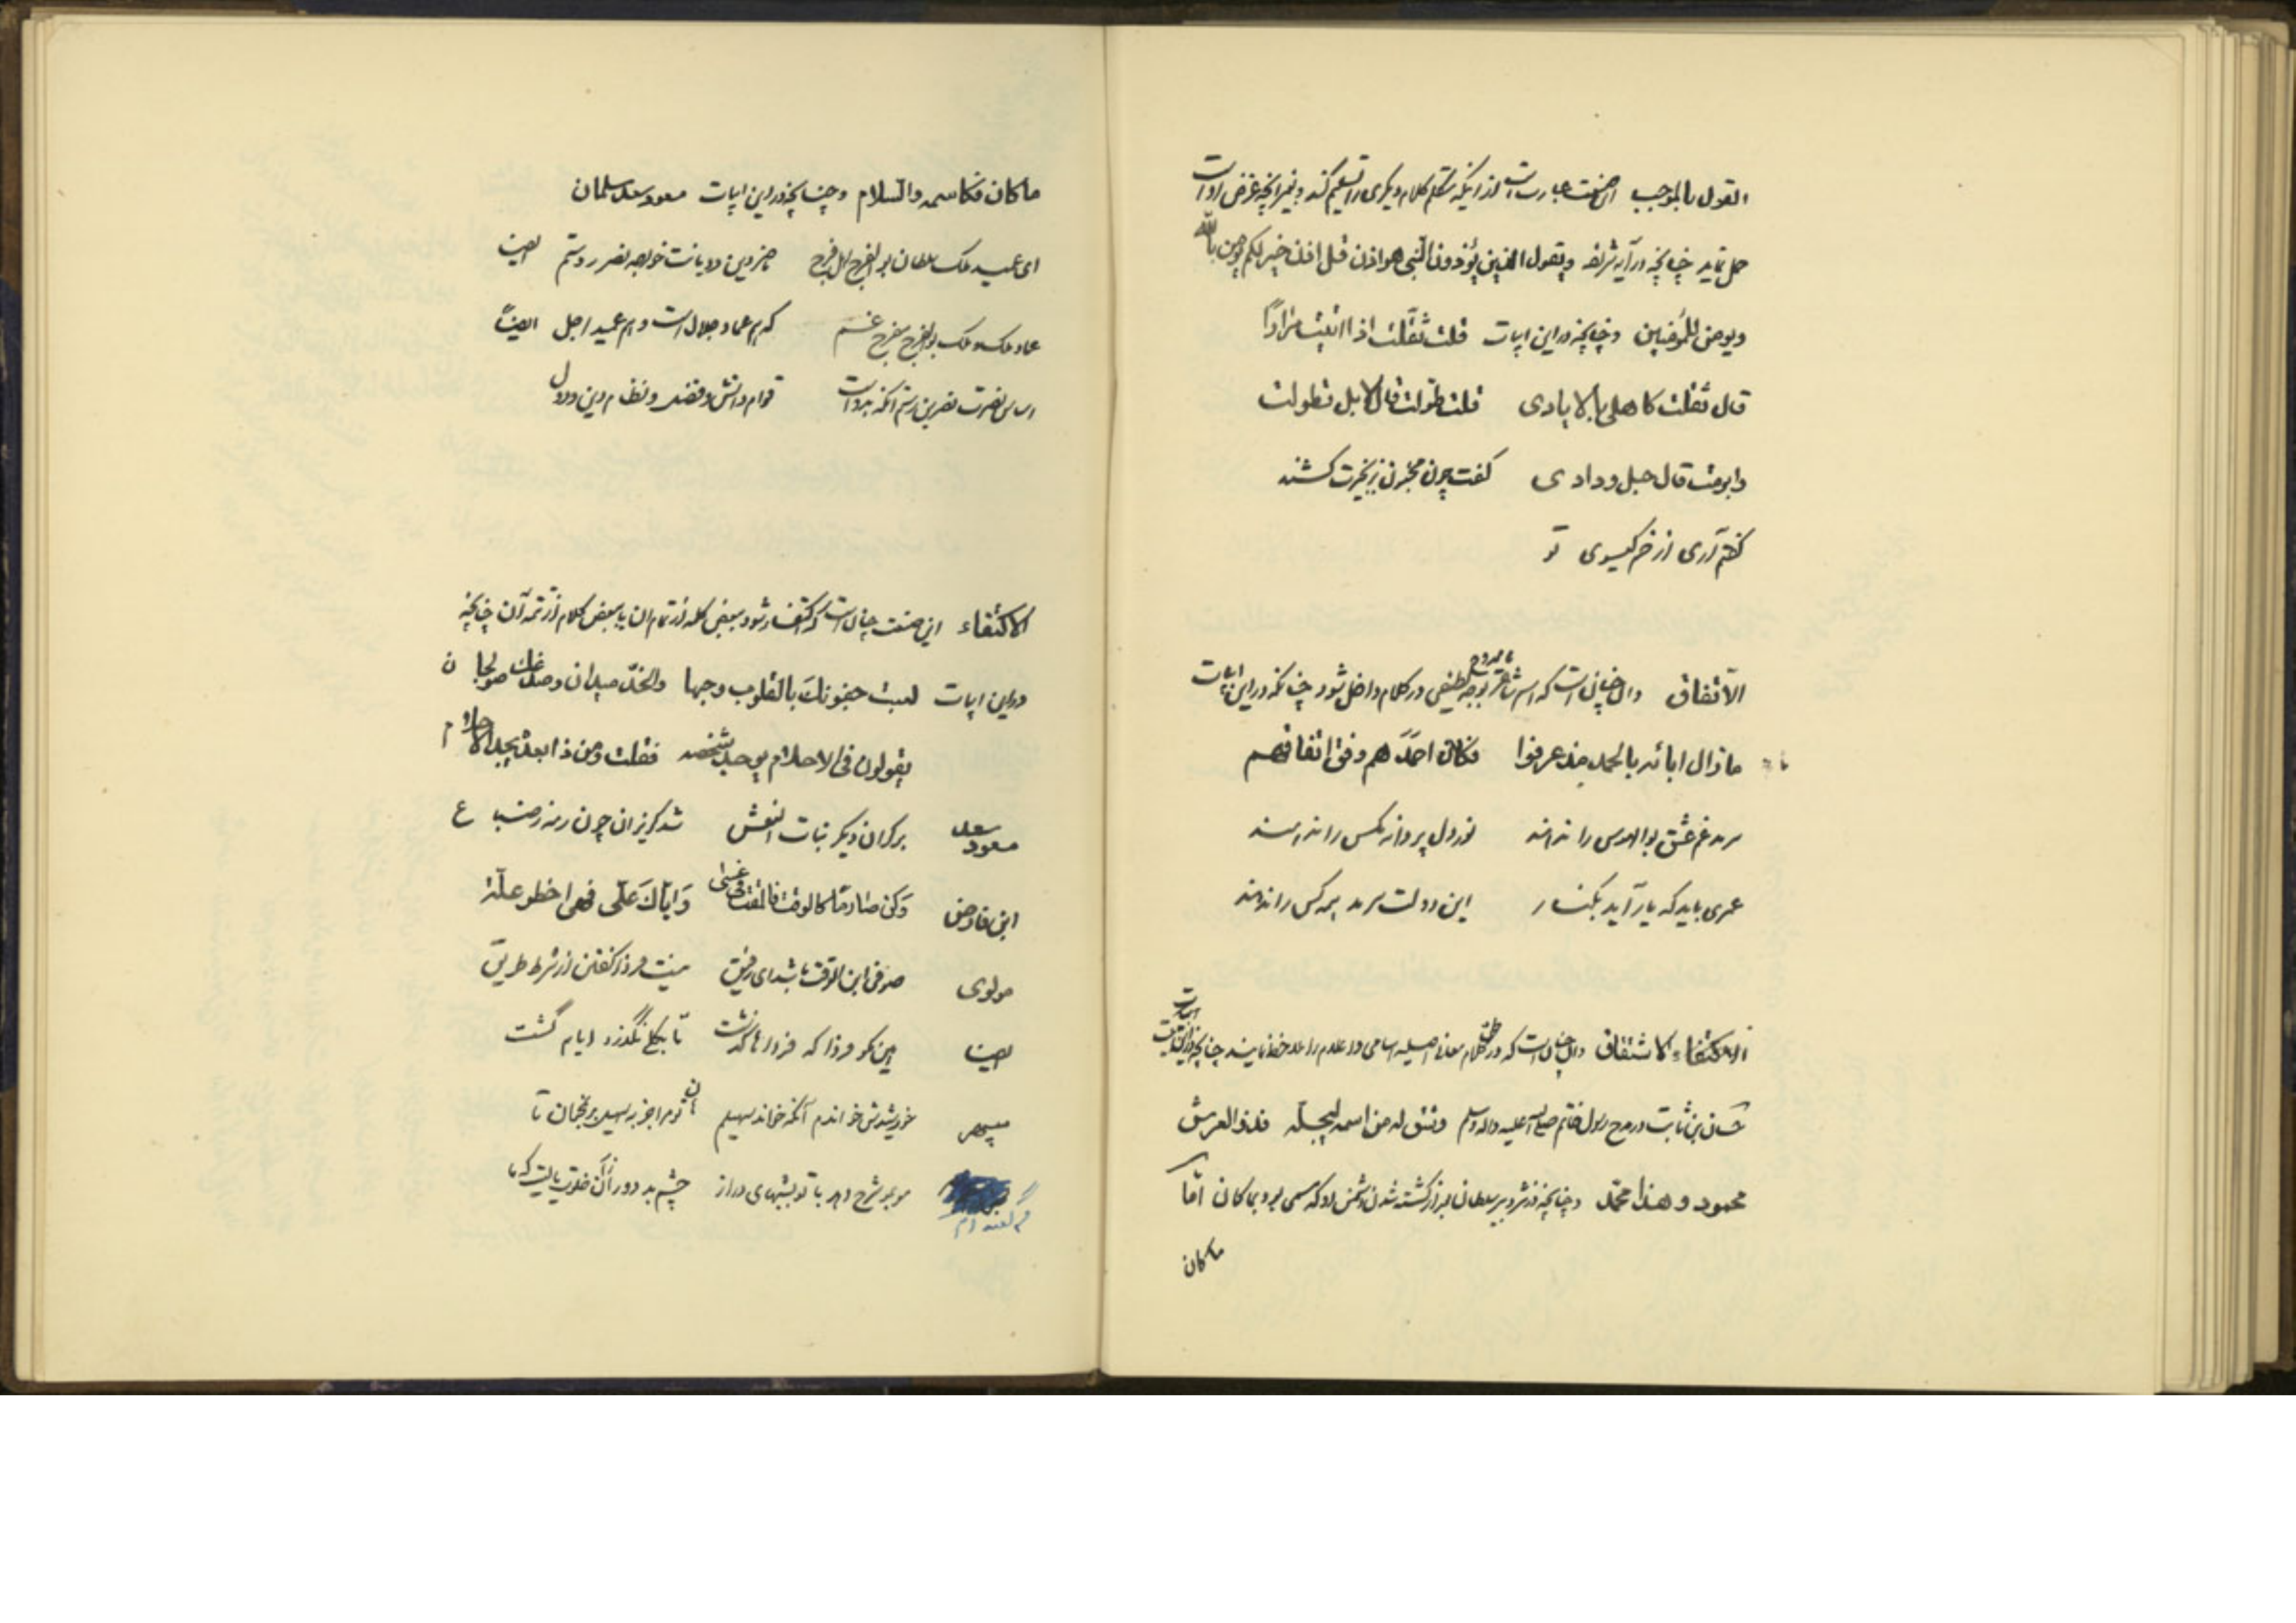 القول بالموجب این صنعت عبارت است از اینکه متکلم کلام دیگری را تسلیم کند و بغیر آنچه غرض او است
حمل نماید چنانچه در آیه شریفه ویقول الذین یؤذون النبی هو اذن قل اذن خیر لکم یومن بالله
ویومن للمؤمنین وچنانچه در این ابیات قلت ثقلت اذا اتیت مرارًا
قال ثقلت کاهلی بالایادی قلت طولت قال لا بل تطولت
وابرمت قال حبل ودادی گفت چون مجنون بزنجیرت کشند
گفتم آری از خم گیسوی تو
الاتفاق وآن چنان است که اسم شاعر یا ممدوح بوجه لطیفی در کلام داخل شود چنانکه در این ابیات
مازال ابائه بالحمد مذ عرفوا فکان احمد هم وفق اتفاقهم
سرمد غم عشق بوالهوس را ندهند نور دل پروانه مگس را ندهند
عمری باید که یار آید بکنار این دولت سرمد همه کس را ندهند
الاشتقاق وآن چنان است که در کلام معانی اصلیه اسامی و اعلام را ملاحظه نمایند چنانچه در این ابیات
حسان بن ثابت در مدح رسول خاتم صلی الله علیه واله وسلم وشق له من اسمه لیجله فذو العرش
محمود وهذا محمد وچنانچه در نثر دبیر سلطان پس از کشته شدن دشمن او که مسمی بود بماکان اما
ماکان
ماکان فکاسمه والسلام وچنانچه در این ابیات مسعود سعد سلمان
ای عمید ملک سلطان بوالفرج اهل فرج ناصر دین و دیانت خواجه نصر رستم ایضا
عماد ملک و ملک بوالفرج مفرج غم که هم عماد جلال است و هم عمید اجل ایضاً
اساس نصرت نصر بن رستم آنکه بدو است قوام دانش و فضل و نظام دین و دول
الاکتفاء این صنعت چنان است که اکتفا شود ببعض کلمه از تمام آن یا ببعض کلام از تتمه آن چنانچه
در این ابیات لعبت جفونک بالقلوب وحبها والخد میدان وصدغک صولجان
یقولون فی الاحلام یوجد شخصه فقلت ومن ذا بعده یجد الاحلام
مسعود سعد بر کران دیگر بنات النعش شد گریزان چون رمه ز ضب ع
ابن فارض وکن صارمًا کالوقت فالمقت فی عسی وایاک علّی فهی اخطر علة
مولوی صوفی ابن الوقت باشد ای رفیق نیست فردا گفتن از شرط طریق
ایضا هین مگو فردا که فرداها گذشت تا بکلی نگذرد ایام گشت
سپهر خورشیدش خواندم آنکه خواند سهیلم
موبمو شرح دهم با تو بشبهای دراز چشم بد دور از آن خلوت